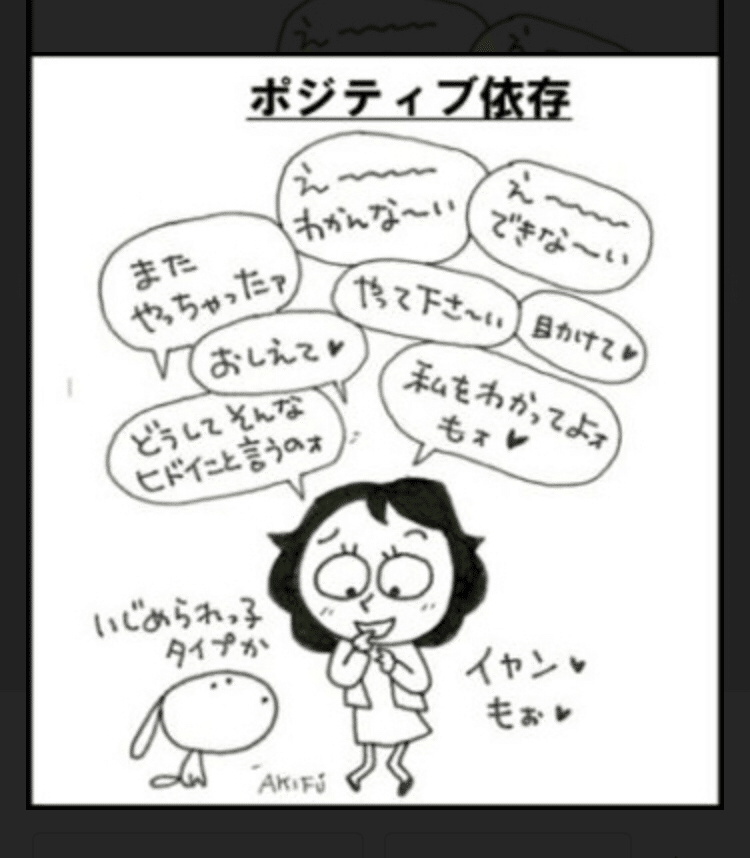 え〜〜〜
ポジティブ依存
え〜〜〜
わかんな〜い
え〜〜〜
できな〜い
また
やっちゃったァ
やって下さ〜い
助けて♥
おしえて♥
私をわかってよォ
もォ♥
どうして そんな
ヒドイこと言うのォ
いじめられっ子
タイプか
イヤン♥
もぉ♥
AKIFU